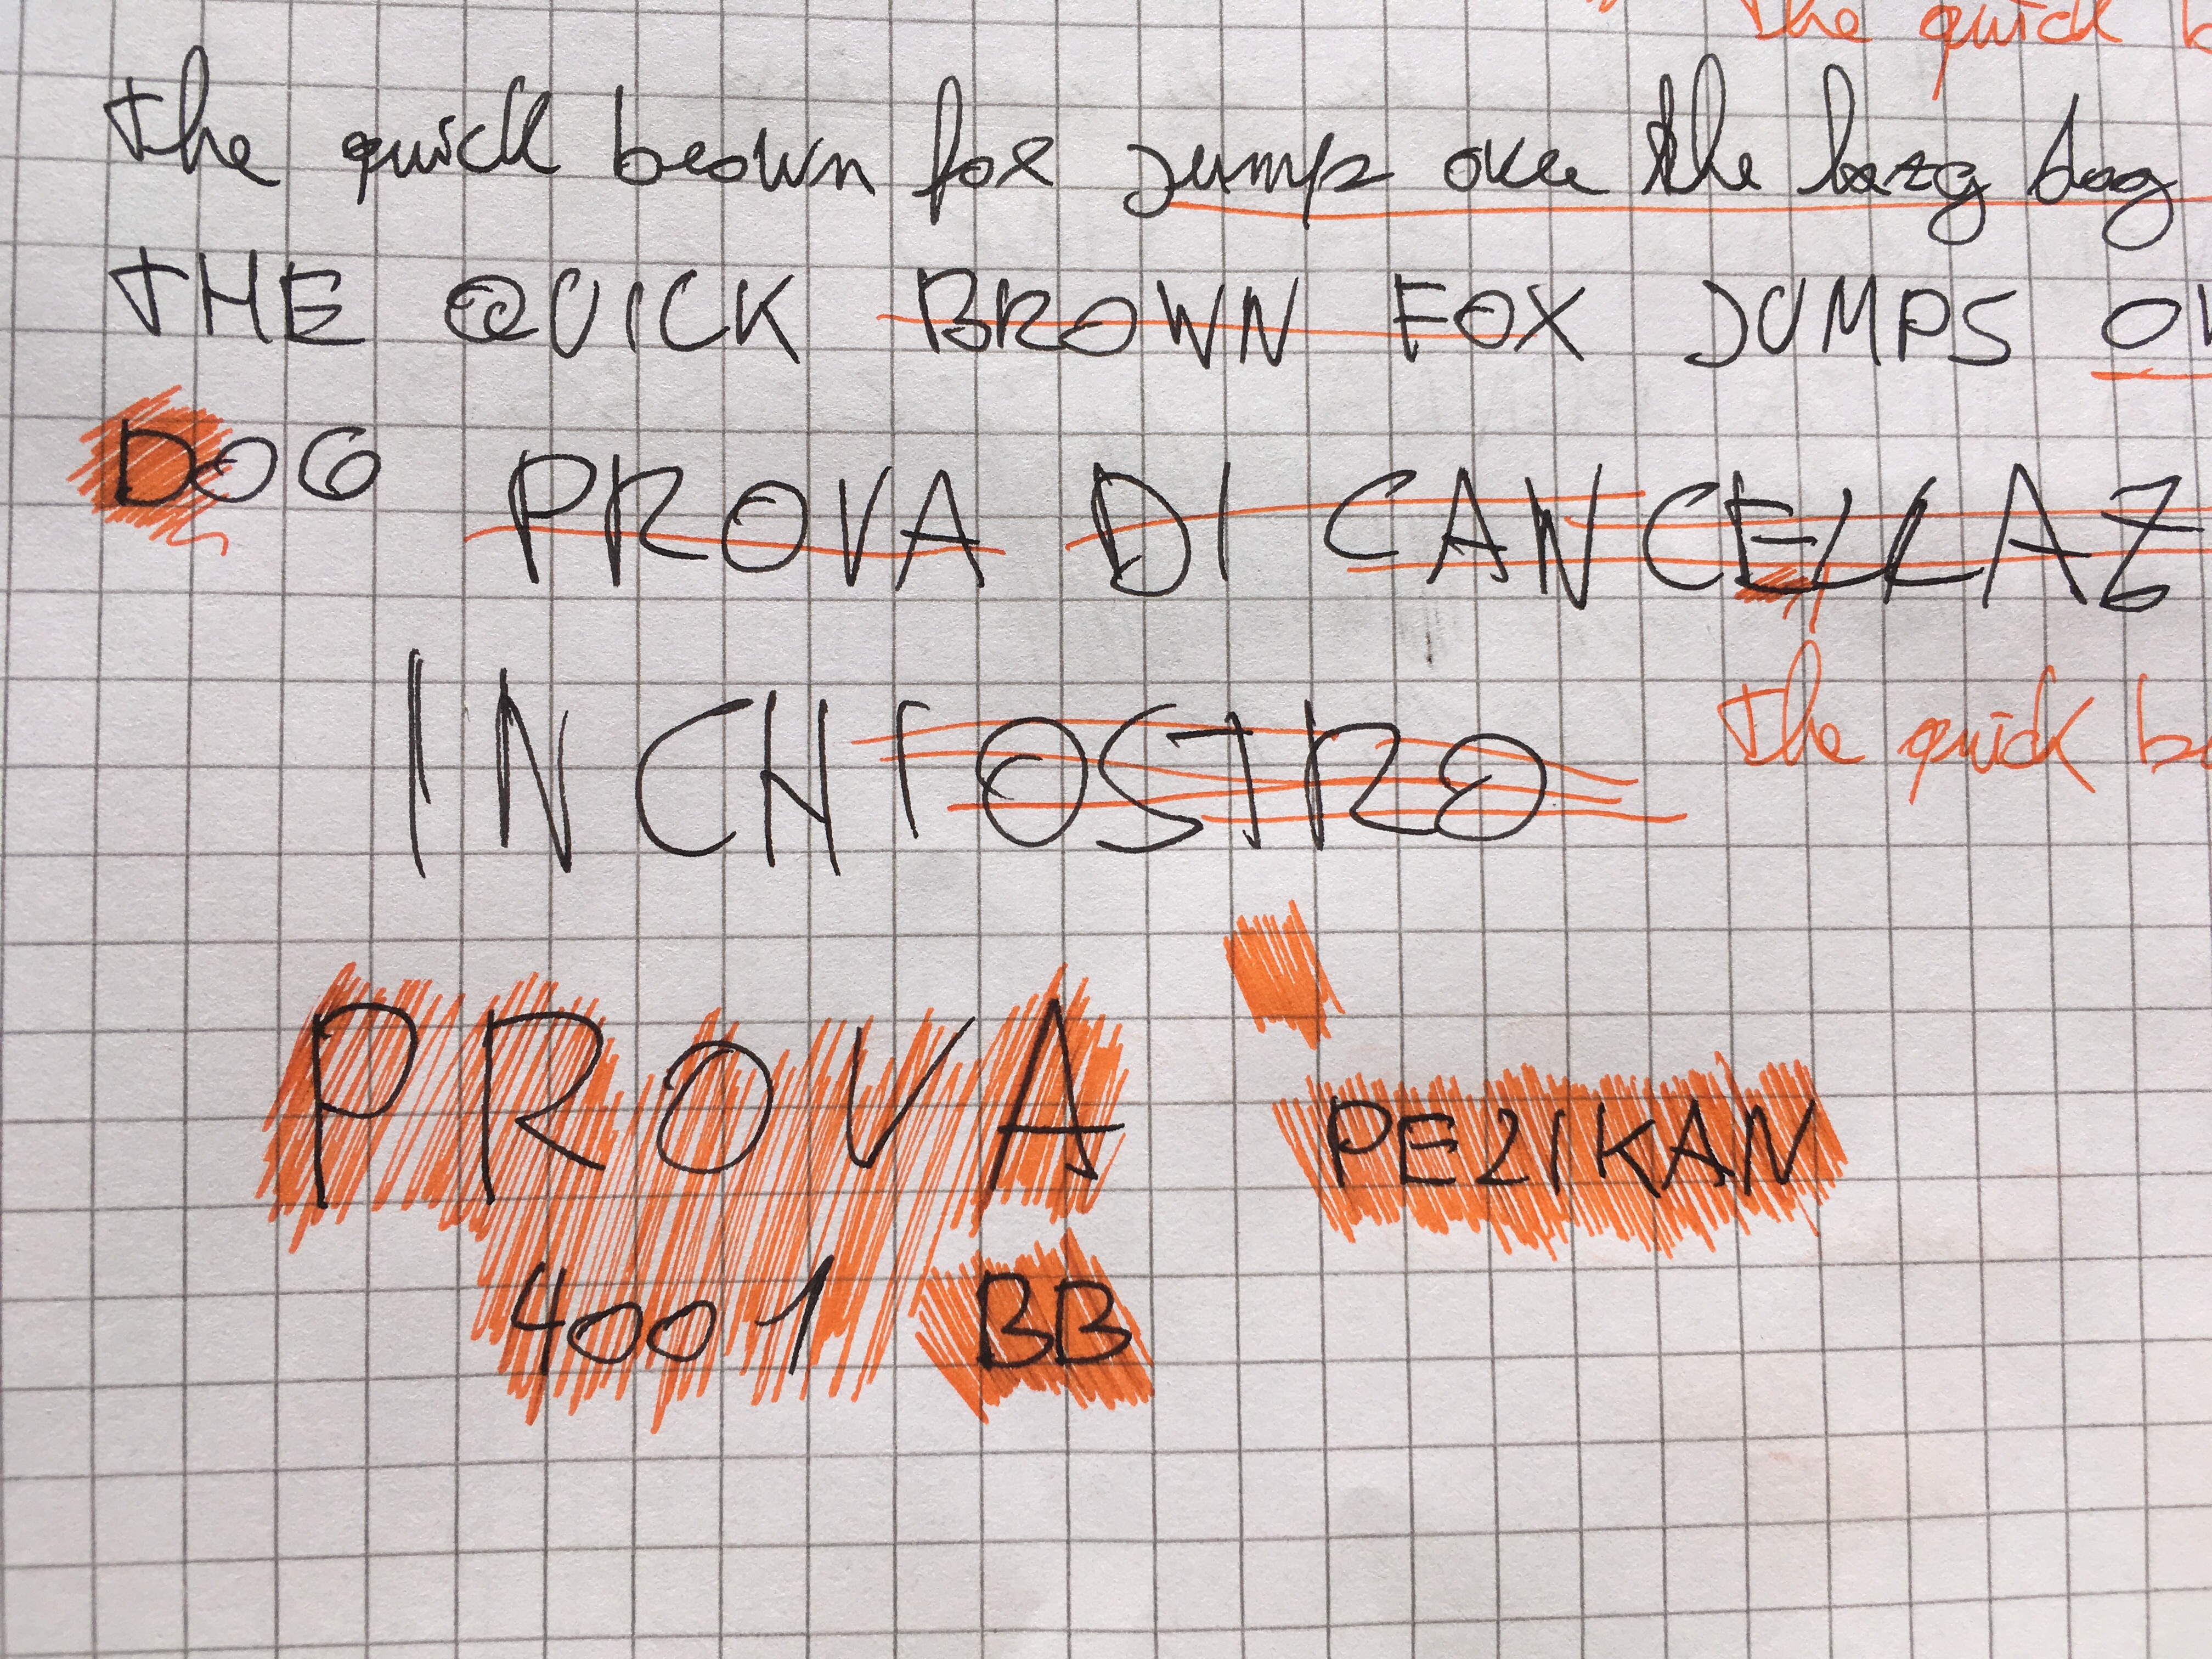 the quick b
the quick brown fox jump over the lazy dog
THE QUICK BROWN FOX JUMPS OV
DOG PROVA DI CANCELLAZ
INCHIOSTRO
the quick b
PROVA
PELIKAN
4001 BB